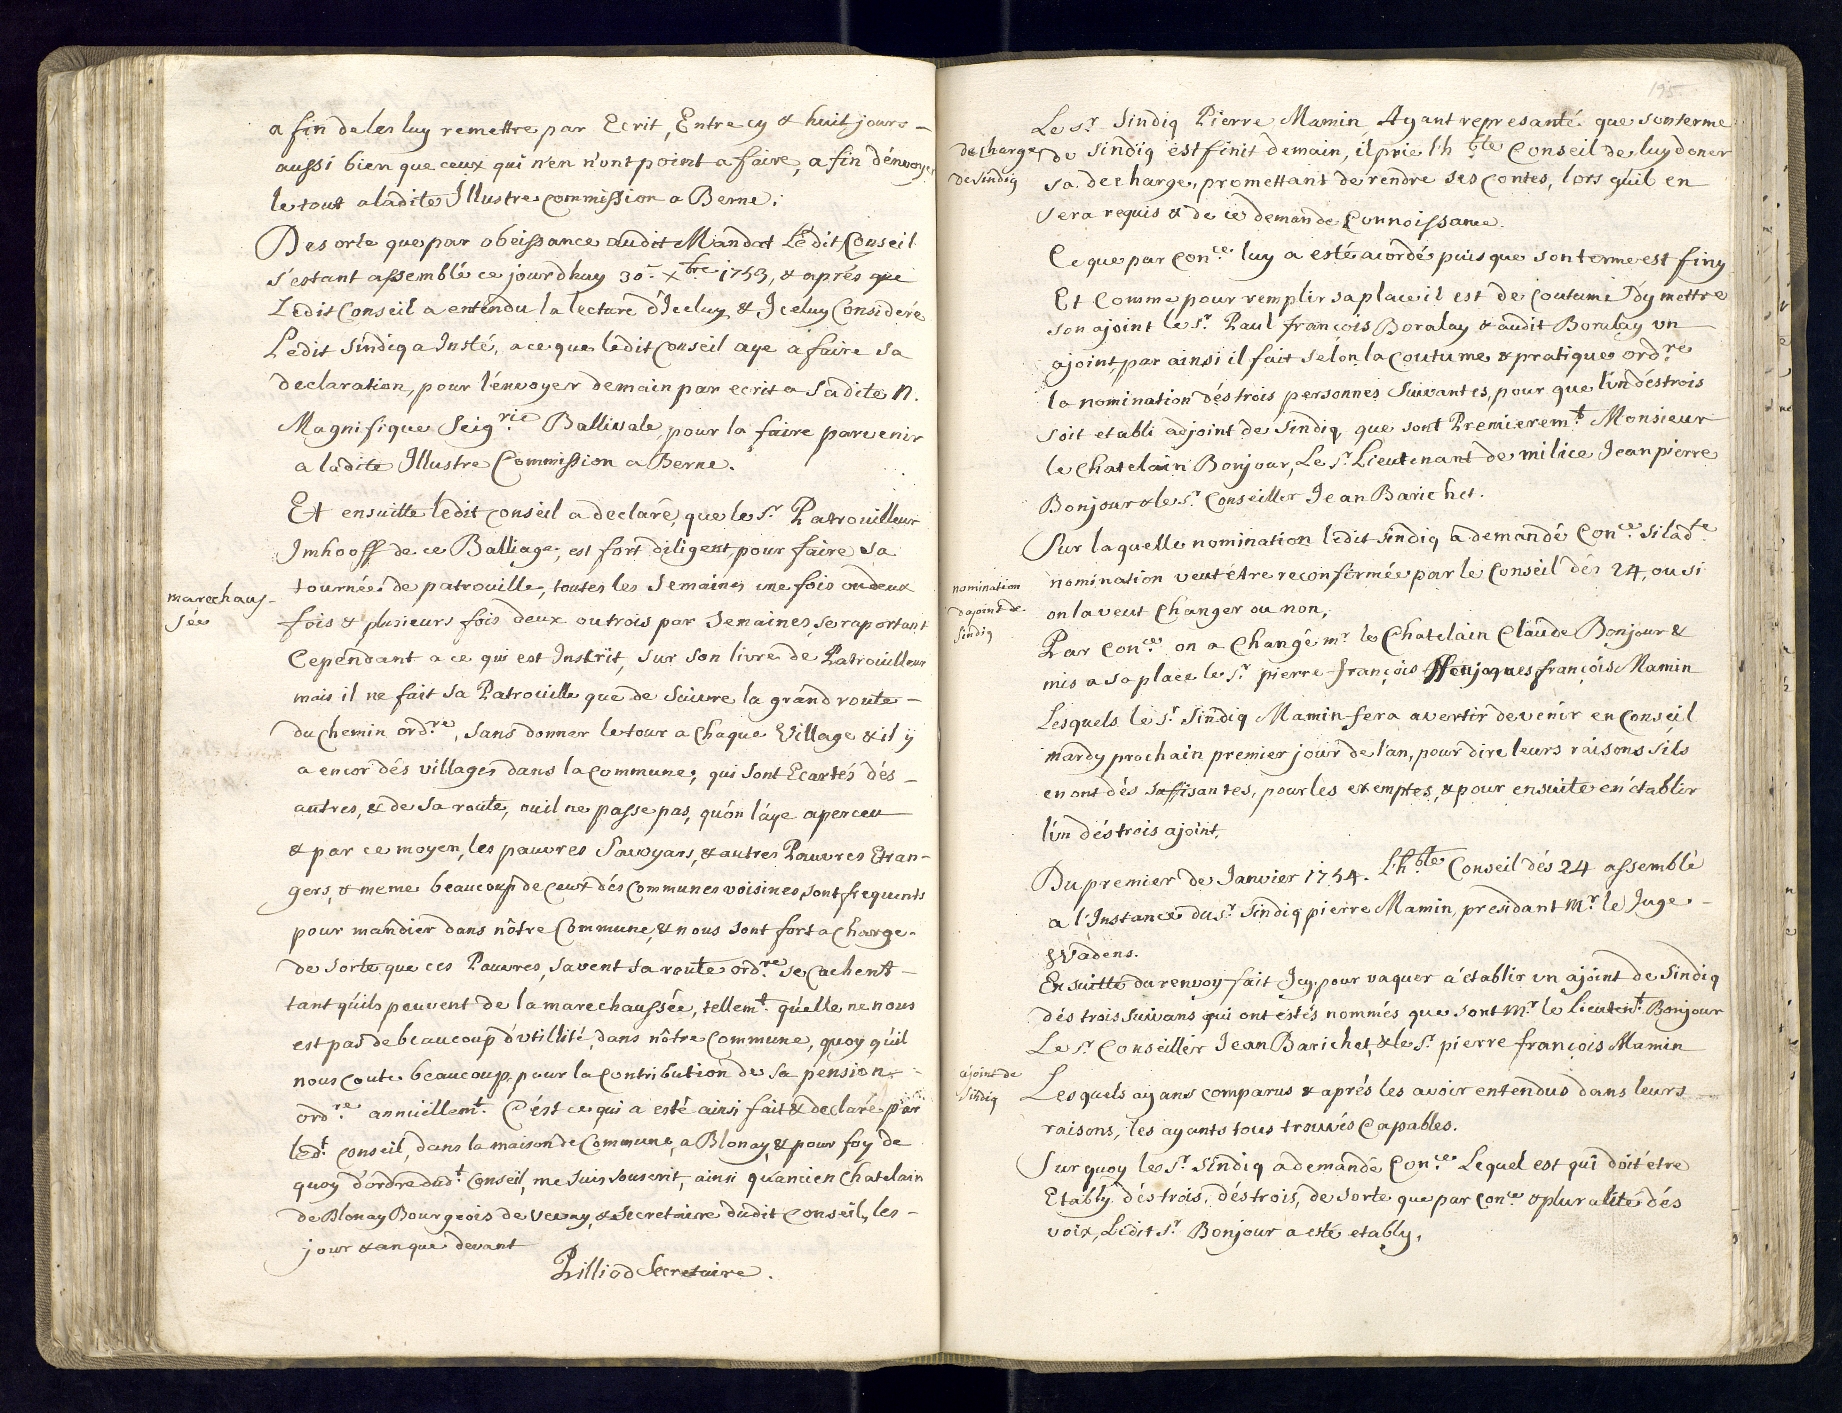 a fin de les luy remettre par Ecrit, Entre cy & huit jours –
aussi bien que ceux qui n'en n'ont point a faire, a fin d'énvoyer
le tout a ladite Illustre Commission a Berne.
De sorte que par obeissance audit Mandat Lédit Conseil
s'estant assemblé ce jourdhuy 30e Xbre 1753, & aprés que
Lédit Conseil a entendu la lecture d'Iceluy & Iceluy Consideré
Lédit Sindiq a Insté, a ce que lédit Conseil aye a faire sa
declaration, pour l'énvoyer demain par ecrit a Sadite N.
Magnifique Seigrie Ballivale, pour la faire parvenir
a ladite Illustre Commission a Berne.
Et ensuitte lédit Conseil a declaré, que le Sr Patrouilleur
Imhooff de ce Balliage, est fort diligent, pour faire sa
marechaus-
sée
tournée de patrouille, toutes les Semaines une fois ou deux
fois & plusieurs fois deux ou trois par Semaines, se raportant
Cependant a ce qui est Instrüit, sur son livre de Patrouilleur
mais il ne fait sa Patrouille que de Suivre la grand route –
du chemin ordre, Sans donner le tour a Chaque Village & il ÿ
a encor dés villages dans la Commune, qui sont Ecartés dés –
autres, & de sa route, ou il ne passe pas, qu'on l'aye aperceu
& par ce moyen, les pauvres Savoyars, & autres Pauvres Etran-
gers, & meme beaucoup de ceux dés Communes voisines, sont frequents
pour mandier dans nôtre Commune, & nous sont fort a Charge.
de Sorte que ces Pauvres, savent sa route ordre se cachent –
tant qu'ils peuvent de la marechaussée, tellemt qu'elle ne nous
est pas de beaucoup d'utillité, dans nôtre Commune, quoy qu'il
nous Coute beaucoup, pour la Contribution de sa pension –
ordre annuëllemt. C'ést ce qui a esté ainsi fait & declaré par
ledt Conseil, dans la maison de Commune, a Blonay, & pour foy de
quoy d'ordre dudt Conseil, me suis souscrit, ainsi qu'ancien Chatelain
de Blonay Bourgeois de Vevay, & Secretaire dudit Conseil, les –
jour & an que devant
Pilliod Secretaire.
195.
Le Sr Sindiq Pierre Mamin Ayant represanté que son terme
decharge
de Sindiq
de Sindiq est finit demain, il prie l'hble Conseil de luy doner
sa decharge, promettant de rendre ses Contes, lors qu'il en
sera requis & de ce demande Connoissance.
Ce que par Conce luy a esté acordé puis que son terme est finy
Et Comme pour remplir sa place il est de Coutume d'y mettre
son ajoint le Sr Paul françois Boralay & audit Boralay un
ajoint, par ainsi il fait selon la Coutume & pratique ordre
la nomination dés trois personnes Suivantes, pour que l'un dés trois
soit etabli adjoint de Sindiq, que sont Premieremt Monsieur
le Chatelain Bonjour, Le Sr Lieutenant de milice Jean pierre
Bonjour & le Sr Conseiller Jean Barichet.
Sur laquelle nomination lédit Sindiq a demandé Conce si ladte
nomination
d'ajoint de
Sindiq
nomination veut etre reconfirmée par le Conseil dés 24, ou si
on la veut Changer ou non,
Par Conce on a Changé mr le Chatelain Claude Bonjour &
mis a sa place le Sr pierre-françois jaques françois Mamin
Lesquels le Sr Sindiq Mamin fera avertir de venir en Conseil
mardy prochain premier jour de l'an, pour dire leurs raisons s'ils
en ont dés suffisantes, pour les exempter, & pour ensuite en établir
l'un dés trois ajoint.
Du premier de Janvier 1754. L'hble Conseil dés 24 assemblé
a l'Instance du Sr Sindiq pierre Mamin, presidant Mr le Juge –
DeVadens.
Ensuitte du renvoy fait Icy, pour vaquer a établir un ajoint de Sindiq
dés trois suivans qui ont estés nommés que sont Mr le Lieutent Bonjour
Le Sr Conseiller Jean Barichet, & le Sr pierre françois Mamin
ajoint de
Sindiq
Lesquels ayans comparus & aprés les avoir entendus dans leurs
raisons, les ayants tous trouvés Capables.
Sur quoy le Sr Sindiq a demandé Conce Lequel est qui doit étre
Etably dés trois, dés trois, de sorte que par Conce & pluralité dés
voix, Lédit Sr Bonjour a esté etably.